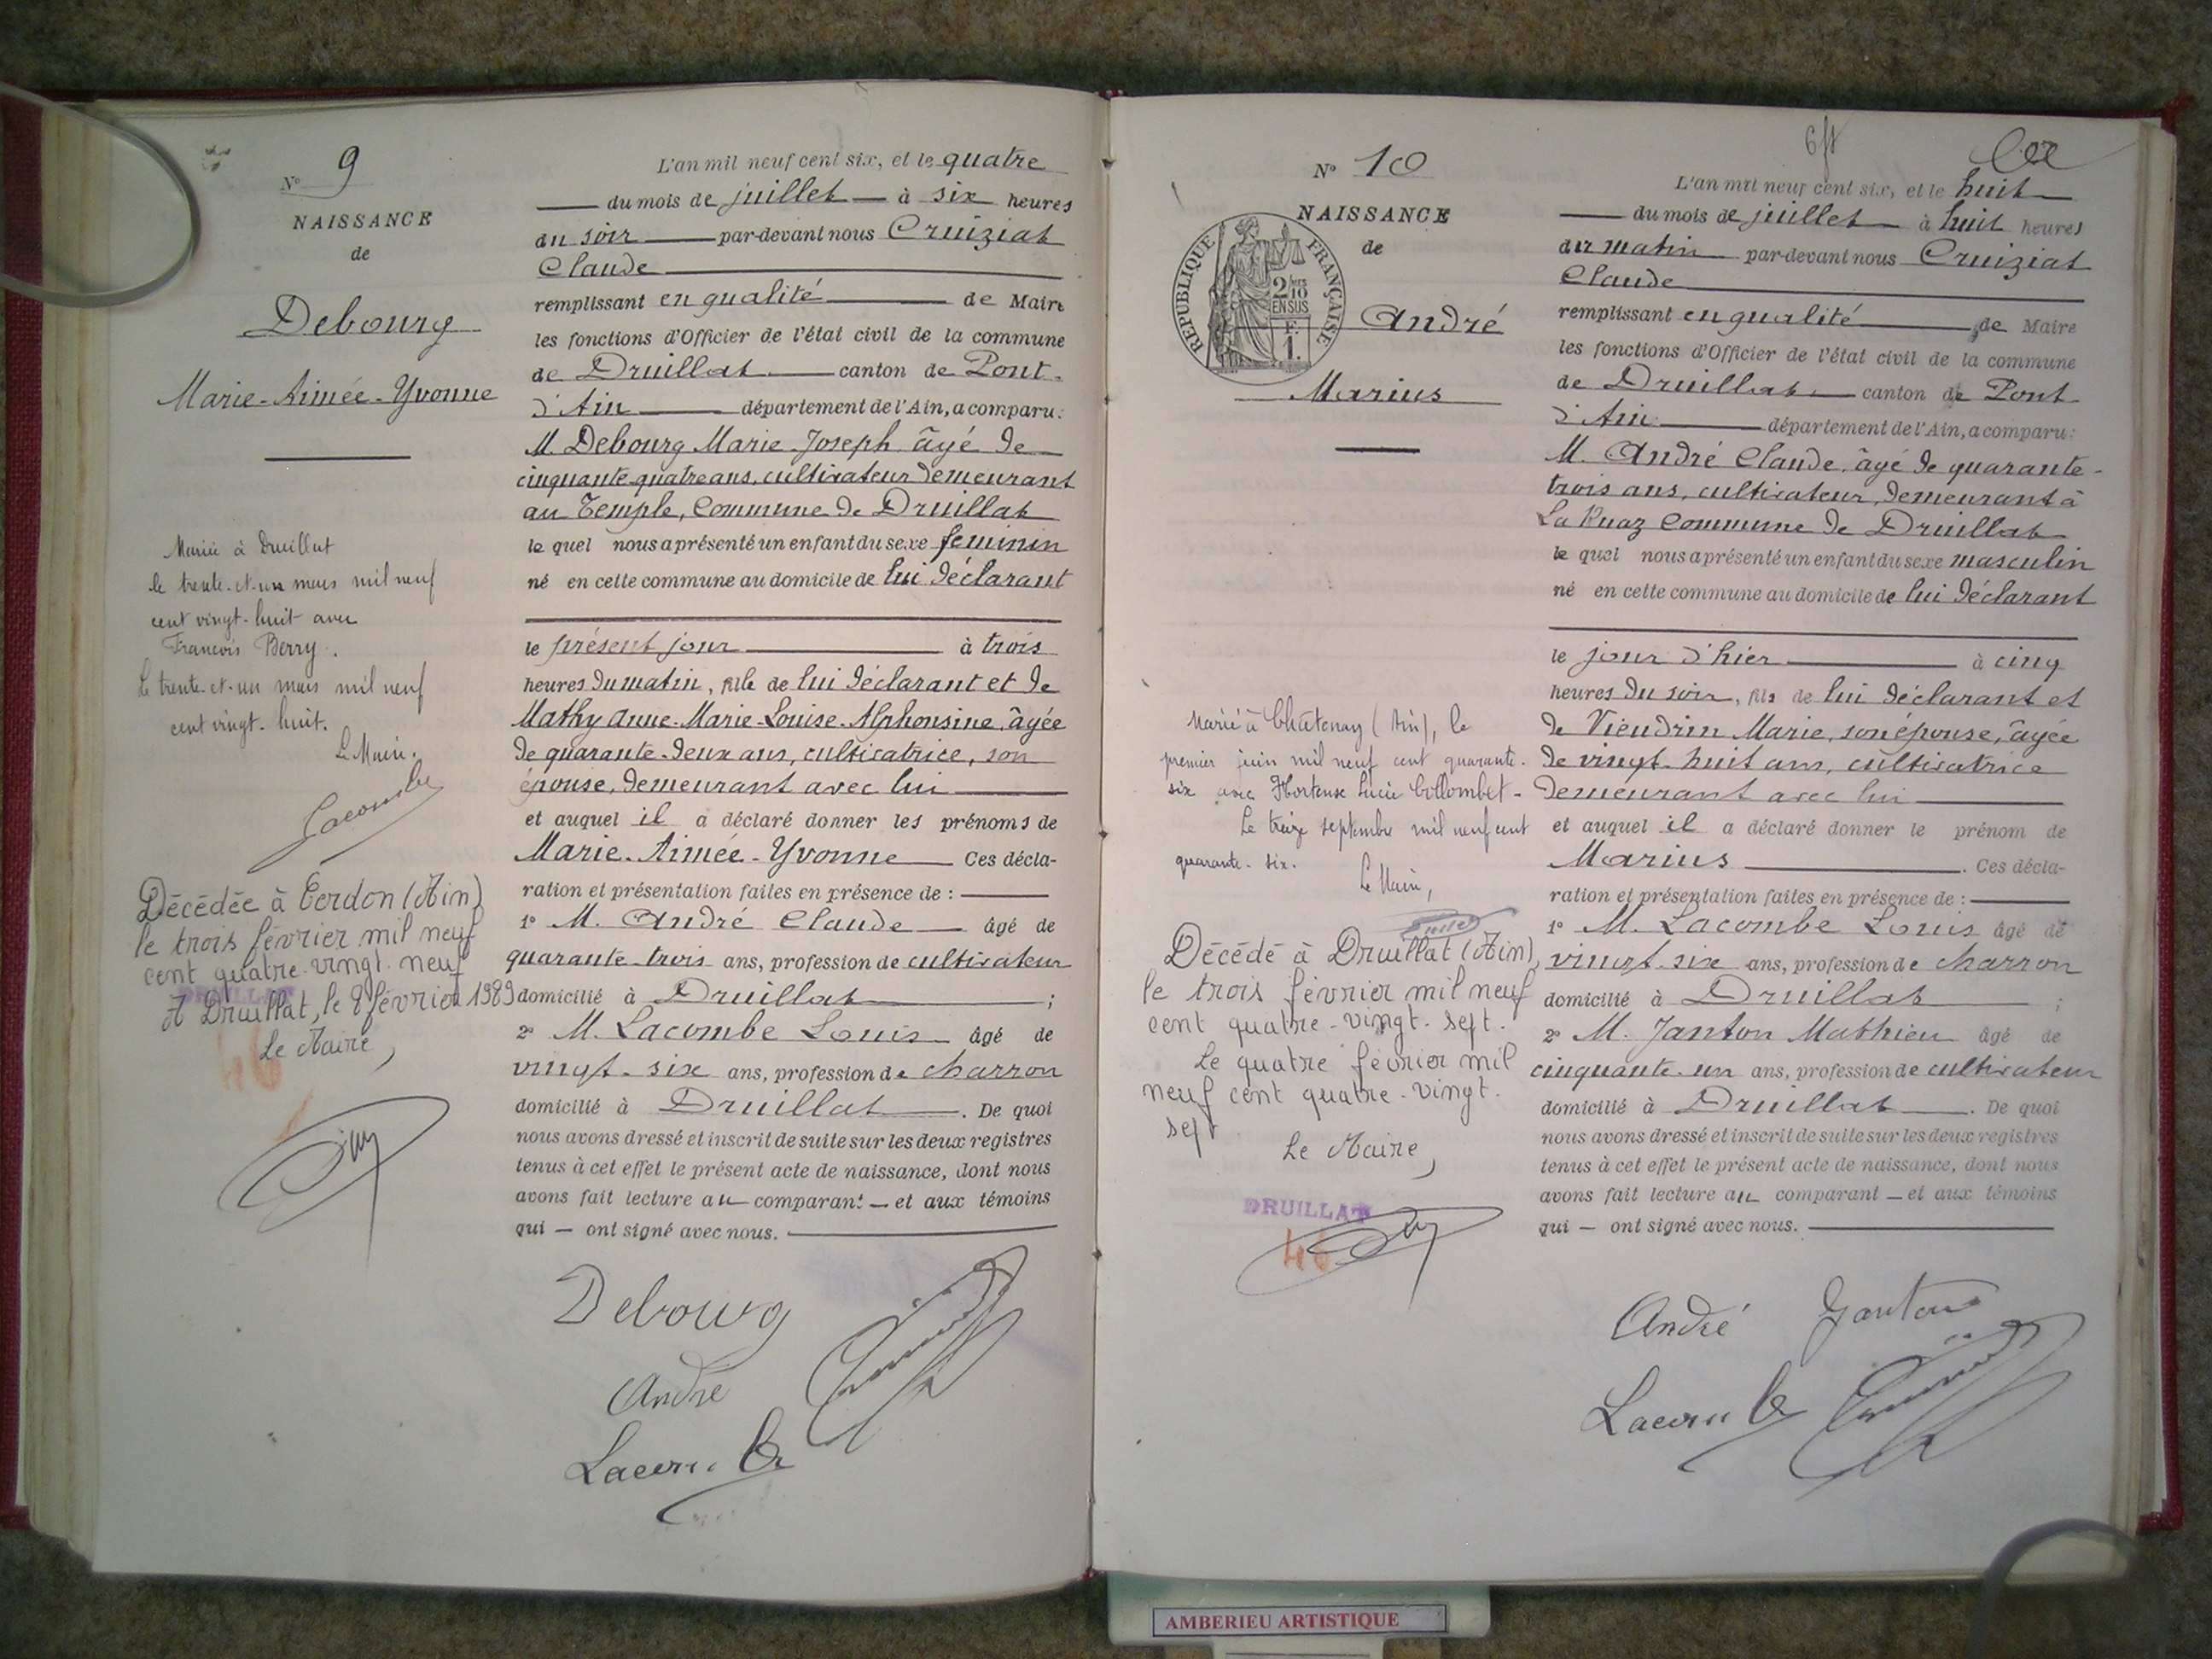 N° 9
NAISSANCE
de
Debourg
Marie-Aimée-Yvonne
Mariée à Druillat
le trente-et-un mars mil neuf
cent vingt-huit avec
François Berry.
Le trente-et-un mars mil neuf
cent vingt-huit.
Le Maire.
Lacombe
Décédée à Cerdon (Ain)
le trois février mil neuf
cent quatre-vingt-neuf
DRUILLAT
A Druillat, le 8 février 1989
Le Maire,
46
L'an mil neuf cent six, et le quatre
du mois de juillet à six heures
du soir par-devant nous Cruiziat
Claude
remplissant en qualité de Maire
les fonctions d'Officier de l'état civil de la commune
de Druillat canton de Pont-
d'Ain département de l'Ain, a comparu:
M. Debourg Marie Joseph âgé de
cinquante-quatre ans, cultivateur demeurant
au Temple, Commune de Druillat
le quel nous a présenté un enfant du sexe féminin
né en cette commune au domicile de lui déclarant
le présent jour à trois
heures du matin, fille de lui déclarant et de
Mathy Anne-Marie-Louise-Alphonsine, âgée
de quarante-deux ans, cultivatrice, son
épouse, demeurant avec lui
et auquel il a déclaré donner les prénoms de
Marie-Aimée-Yvonne Ces décla-
ration et présentation faites en présence de :
1° M. André Claude âgé de
quarante-trois ans, profession de cultivateur
domicilié à Druillat ;
2° M. Lacombe Louis âgé de
vingt-six ans, profession de charron
domicilié à Druillat . De quoi
nous avons dressé et inscrit de suite sur les deux registres
tenus à cet effet le présent acte de naissance, dont nous
avons fait lecture au comparant — et aux témoins
qui — ont signé avec nous.
Debourg
André
Lacombe
N° 10
NAISSANCE
de
RÉPUBLIQUE FRANÇAISE
2/10
EN SUS
F.
1.
André
Marius
Marié à Châtenay (Ain), le
premier juin mil neuf cent quarante-
six avec Hortense Lucie Collombet -
Le treize septembre mil neuf cent
quarante-six.
Le Maire,
Décédé à Druillat (Ain),
le trois février mil neuf
cent quatre-vingt-sept.
Le quatre février mil
neuf cent quatre-vingt-
sept
Le Maire,
DRUILLAT
46
L'an mil neuf cent six, et le huit
du mois de juillet à huit heures
du matin par-devant nous Cruiziat
Claude
remplissant en qualité de Maire
les fonctions d'Officier de l'état civil de la commune
de Druillat canton de Pont
d'Ain département de l'Ain, a comparu:
M. André Claude, âgé de quarante-
trois ans, cultivateur, demeurant à
La Ruaz Commune de Druillat
le quel nous a présenté un enfant du sexe masculin
né en cette commune au domicile de lui déclarant
le jour d'hier à cinq
heures du soir, fils de lui déclarant et
de Vieudrin Marie, son épouse, âgée
de vingt-huit ans, cultivatrice
demeurant avec lui
et auquel il a déclaré donner le prénom de
Marius . Ces décla-
ration et présentation faites en présence de :
1° M. Lacombe Louis âgé de
vingt-six ans, profession de charron
domicilié à Druillat ;
2° M. Janton Mathieu âgé de
cinquante-un ans, profession de cultivateur
domicilié à Druillat . De quoi
nous avons dressé et inscrit de suite sur les deux registres
tenus à cet effet le présent acte de naissance, dont nous
avons fait lecture au comparant — et aux témoins
qui — ont signé avec nous.
André Janton
Lacombe
AMBERIEU ARTISTIQUE